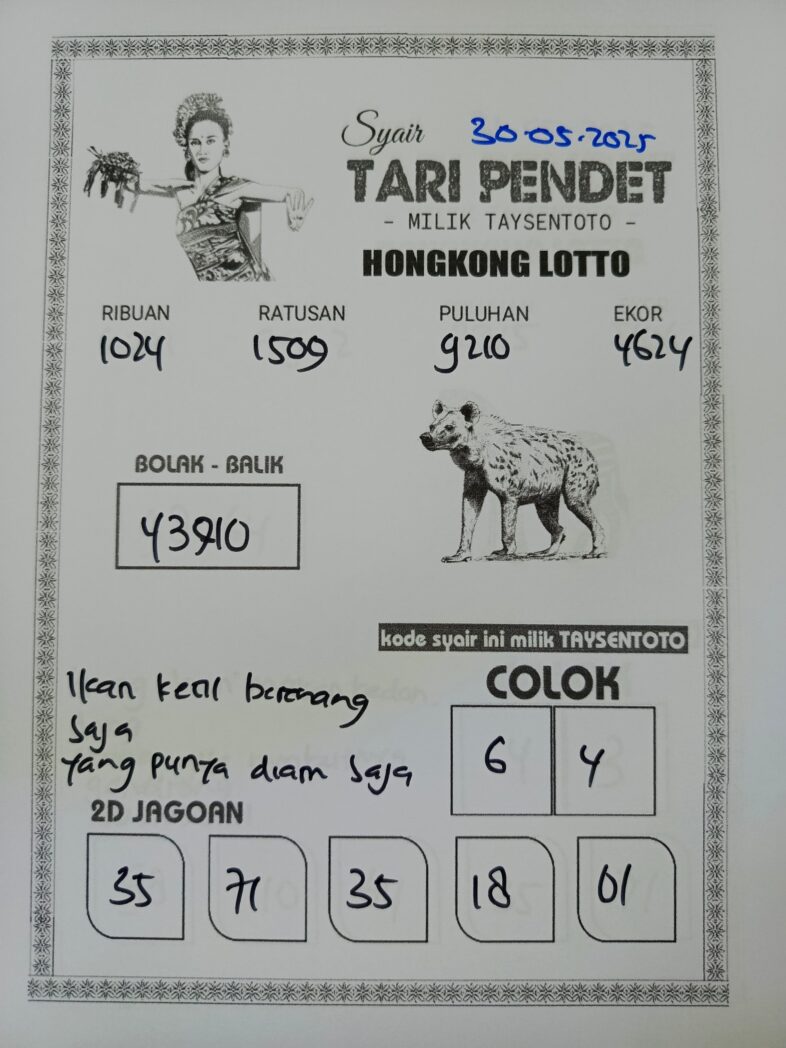 Syair 30-05-2025
TARI PENDET
- MILIK TAYSENTOTO -
HONGKONG LOTTO
RIBUAN RATUSAN PULUHAN EKOR
1024 1509 9210 4624
BOLAK - BALIK
43910
kode syair ini milik TAYSENTOTO
COLOK
6 4
Ikan kecil berenang
saja
yang punya diam saja
2D JAGOAN
35 71 35 18 01